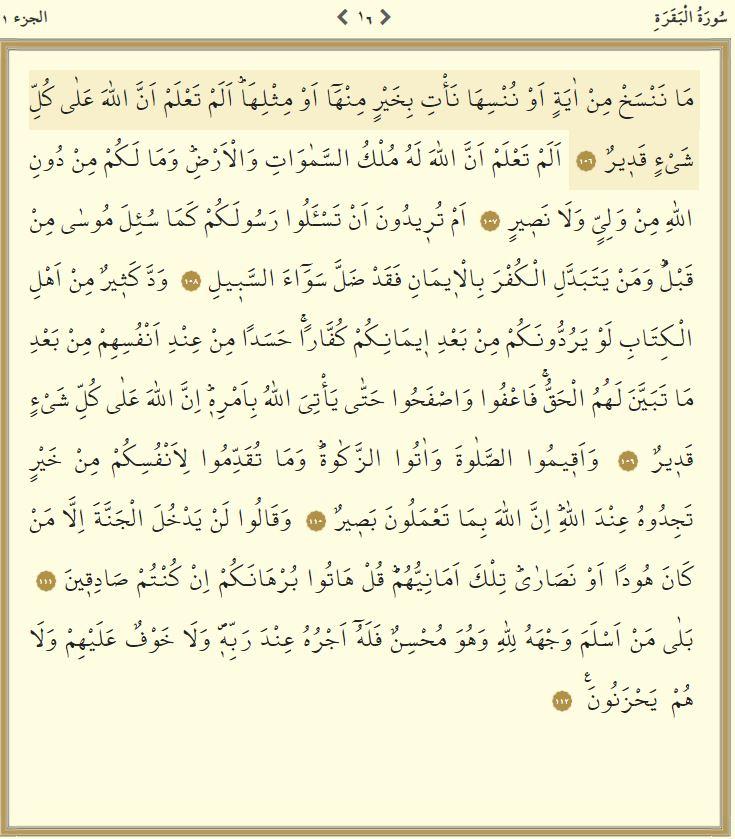 سُورَةُ الْبَقَرَةِ ١٦ الجزء ١
مَا نَنْسَخْ مِنْ اٰيَةٍ اَوْ نُنْسِهَا نَأْتِ بِخَيْرٍ مِنْهَٓا اَوْ مِثْلِهَاۜ اَلَمْ تَعْلَمْ اَنَّ اللّٰهَ عَلٰى كُلِّ
شَيْءٍ قَد۪يرٌ ١٠٦ اَلَمْ تَعْلَمْ اَنَّ اللّٰهَ لَهُ مُلْكُ السَّمٰوَاتِ وَالْاَرْضِۜ وَمَا لَكُمْ مِنْ دُونِ
اللّٰهِ مِنْ وَلِيٍّ وَلَا نَص۪يرٍ ١٠٧ اَمْ تُر۪يدُونَ اَنْ تَسْـَٔلُوا رَسُولَكُمْ كَمَا سُئِلَ مُوسٰى مِنْ
قَبْلُۜ وَمَنْ يَتَبَدَّلِ الْكُفْرَ بِالْا۪يمَانِ فَقَدْ ضَلَّ سَوَٓاءَ السَّب۪يلِ ١٠٨ وَدَّ كَث۪يرٌ مِنْ اَهْلِ
الْكِتَابِ لَوْ يَرُدُّونَكُمْ مِنْ بَعْدِ ا۪يمَانِكُمْ كُفَّارًاۚ حَسَدًا مِنْ عِنْدِ اَنْفُسِهِمْ مِنْ بَعْدِ
مَا تَبَيَّنَ لَهُمُ الْحَقُّۚ فَاعْفُوا وَاصْفَحُوا حَتّٰى يَأْتِيَ اللّٰهُ بِاَمْرِه۪ۜ اِنَّ اللّٰهَ عَلٰى كُلِّ شَيْءٍ
قَد۪يرٌ ١٠٩ وَاَق۪يمُوا الصَّلٰوةَ وَاٰتُوا الزَّكٰوةَۜ وَمَا تُقَدِّمُوا لِاَنْفُسِكُمْ مِنْ خَيْرٍ
تَجِدُوهُ عِنْدَ اللّٰهِۜ اِنَّ اللّٰهَ بِمَا تَعْمَلُونَ بَص۪يرٌ ١١٠ وَقَالُوا لَنْ يَدْخُلَ الْجَنَّةَ اِلَّا مَنْ
كَانَ هُودًا اَوْ نَصَارٰىۜ تِلْكَ اَمَانِيُّهُمْۜ قُلْ هَاتُوا بُرْهَانَكُمْ اِنْ كُنْتُمْ صَادِق۪ينَ ١١١
بَلٰى مَنْ اَسْلَمَ وَجْهَهُ لِلّٰهِ وَهُوَ مُحْسِنٌ فَلَهُٓ اَجْرُهُ عِنْدَ رَبِّه۪ۖ وَلَا خَوْفٌ عَلَيْهِمْ وَلَا
هُمْ يَحْزَنُونَ۟ ١١٢